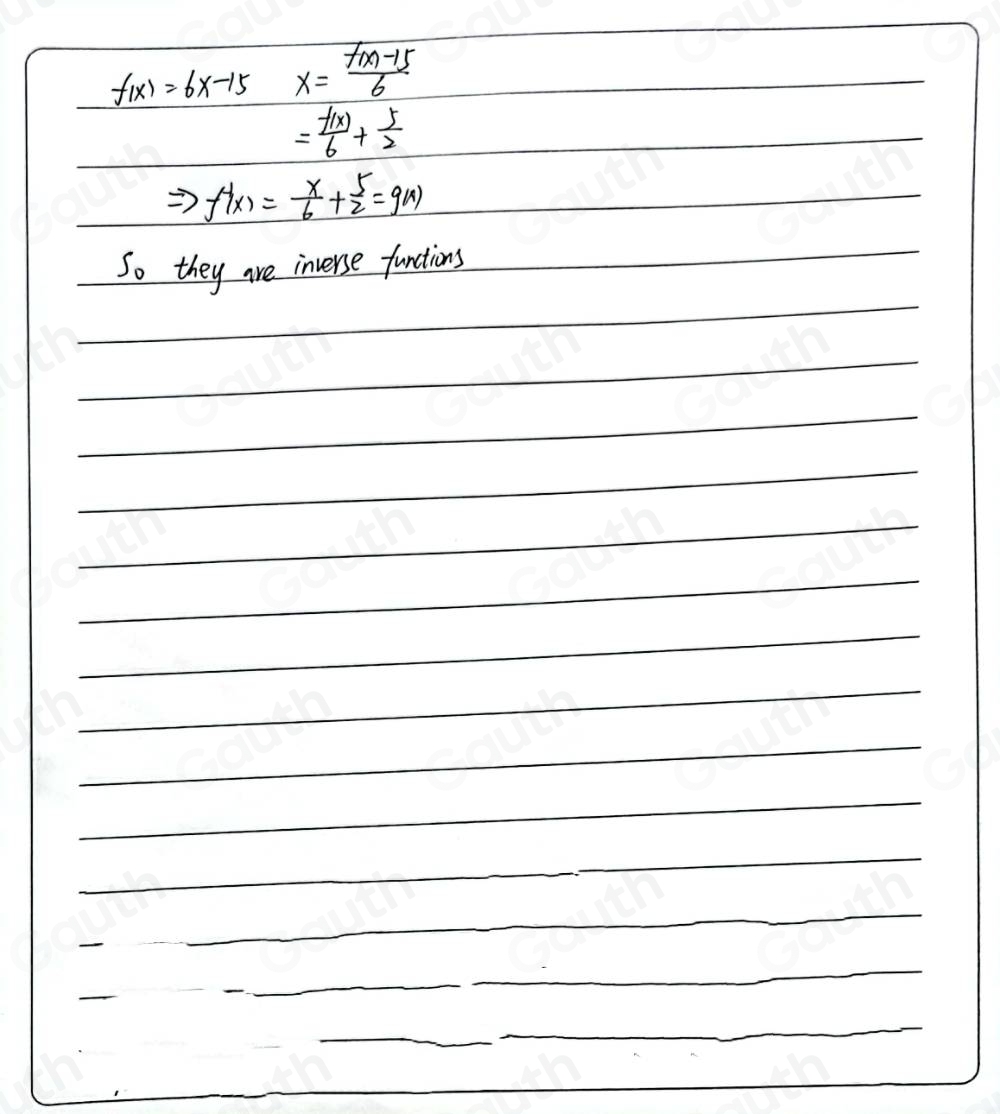 f(x) = 6x-15 x = \frac{f(x)-15}{6}
= \frac{f(x)}{6} + \frac{5}{2}
⇒ f⁻¹(x) = \frac{x}{6} + \frac{5}{2} = g(x)
So they are inverse functions